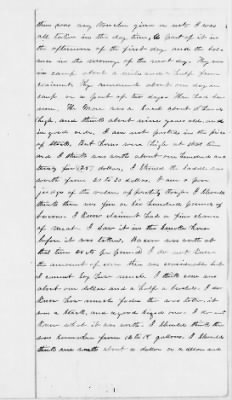 there was any voucher given or not. I was
all taken in the day time, a part of it in
the afternoon of the first day and the bal
ance in the morning of the next day. They were
in camp about a mile and a half from
claimant. They remained about one day in
camp or a part of two days when last I
saw. The Mare was a about 15 hands
high, and I think about nine years old and
in good order. I am not posted in the price
of Stock. But horses were high at that time
and I think was worth about one hundred and
twenty five (125) dollars. I Should the saddle was
worth from 20 to 25 dollars. I am a poor
judge of the value of poultry though. I Should
think there was five or six hundred pounds of
bacon. I know claimant had a fine chance
of meat. I saw it in the smoke house
before it was taken. Bacon was worth at
that time 20 cts per pound. I do not know
the amount of corn there was considerable but
I cannot say how much. I think corn was
about one dollar and a half a bushel. I do
know how much fodder there was taken. it
was a Stack, and a good sized one. I do not
know what it was worth. I Should think there
was from 15 to 18 gallons. I Should
think was worth about a dollar or a dollar and